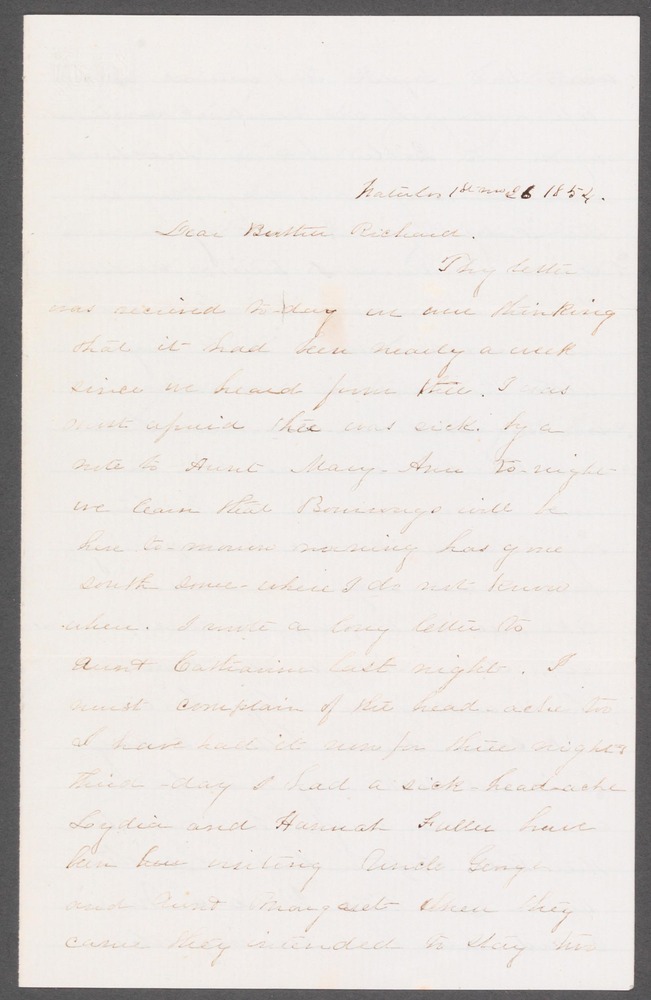 Waterloo 1st mo 26 1854.
Dear Brother Richard.
Thy letter
was recieved to-day on our thinking
that it had been nearly a week
since we heard from thee. I was
most afraid thee was sick. by a
note to Aunt Mary-Ann to-night
we learn that will be
here to-morrow morning has gone
south some-where I do not know
where. I wrote a long letter to
Aunt Catharine last night. I
must complain of the head-ache too
I have had it now for three nights
Third-day I had a sick-headache
Lydia and Hannah Fuller have
been here visiting Uncle George
and Aunt Margaret when they
came they intended to stay two